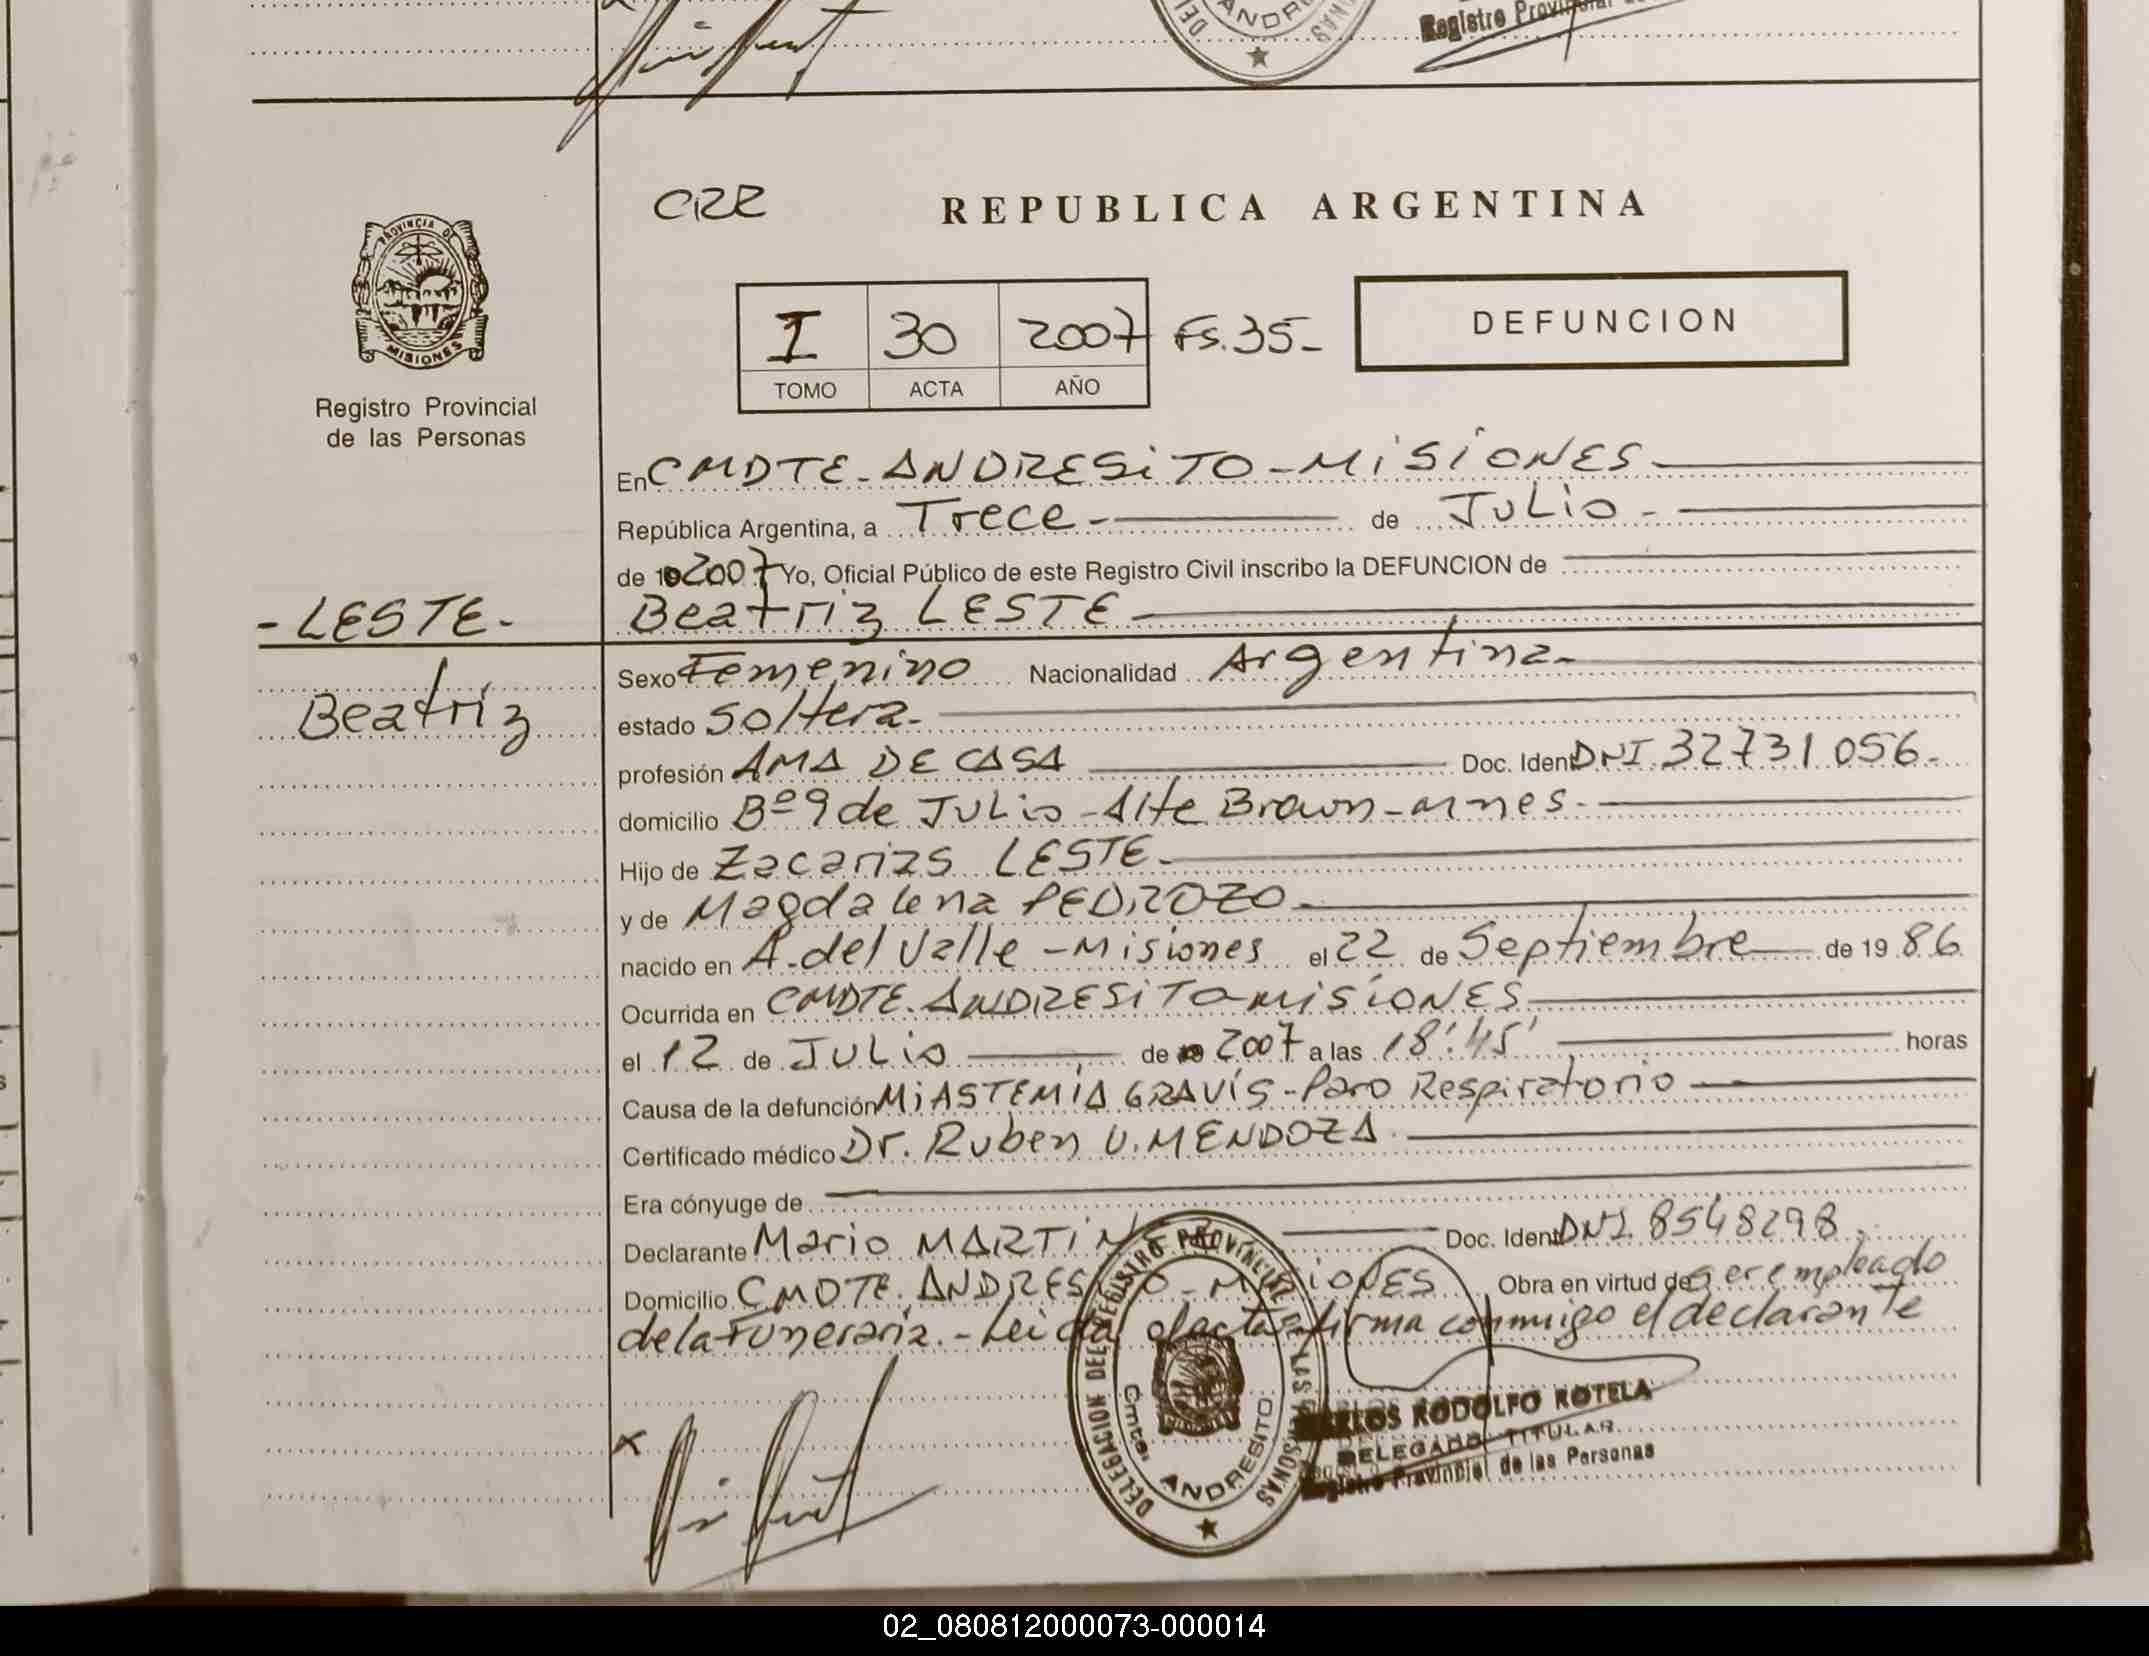 DEL
ANDRE
NAS
Registro Provincial
CRR
REPUBLICA ARGENTINA
PROVINCIA DE
MISIONES
I 30 2007 Fs. 35-
TOMO ACTA AÑO
DEFUNCION
Registro Provincial
de las Personas
En CMDTE. ANDRESITO - MISIONES
República Argentina, a Trece - de Julio -
de 19 2007 Yo, Oficial Público de este Registro Civil inscribo la DEFUNCION de
- LESTE -
Beatriz LESTE
Beatriz
Sexo Femenino Nacionalidad Argentina -
estado soltera -
profesión AMA DE CASA Doc. Ident DNI 32731056 -
domicilio Bº 9 de Julio - Alte Brown - mnes -
Hijo de Zacarias LESTE -
y de Magdalena PEDROZO -
nacido en A. del Valle - Misiones el 22 de Septiembre de 19 86
Ocurrida en CMDTE. ANDRESITO MISIONES
el 12 de Julio de 2007 a las 18:45' horas
Causa de la defunción MIASTEMIA GRAVIS - Paro Respiratorio
Certificado médico Dr. Ruben U. MENDOZA
Era cónyuge de
Declarante Mario MARTIN Doc. Ident DNI 8548298
Domicilio CMDTE. ANDRESITO - MISIONES Obra en virtud de ser empleado
de la Funeraria. - Leida el acta firma conmigo el declarante
DELEGACION DEL REGISTRO PROVINCIAL DE LAS PERSONAS
Cmte. ANDRESITO
CARLOS RODOLFO ROTELA
DELEGADO TITULAR
Registro Provincial de las Personas
x
02_080812000073-000014